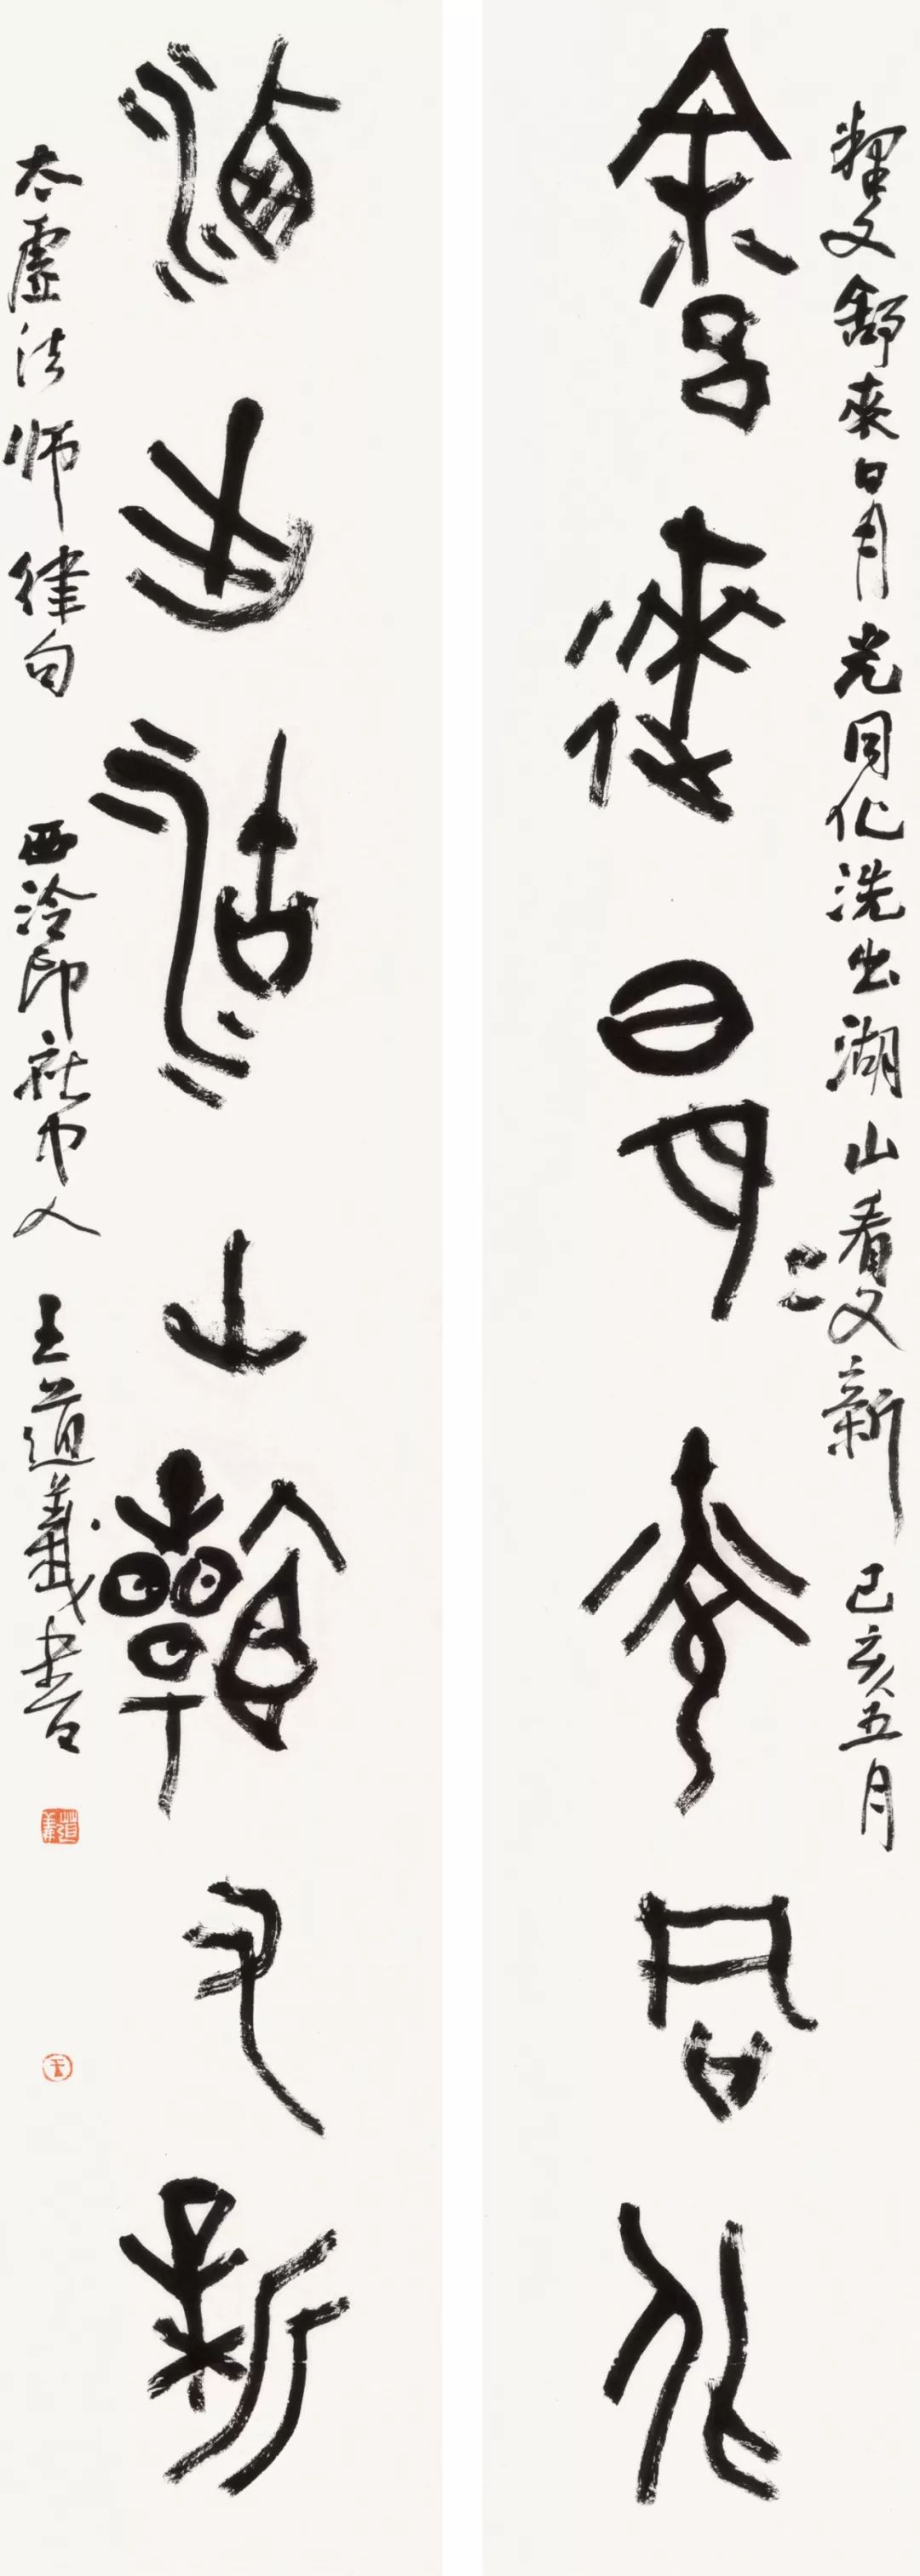 釋文 舒來日月光同化洗出湖山看又新 己亥五月
舒來日月光同化
洗出湖山看又新
太虛法师律句 西泠印社中人 王道義書
道義
王